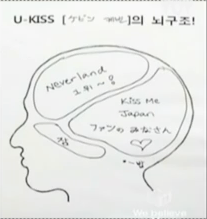 U-KISS [ケビン 케빈]의 뇌구조!
Neverland
1위~!
Kiss Me
Japan
ファンのみなさん
잠